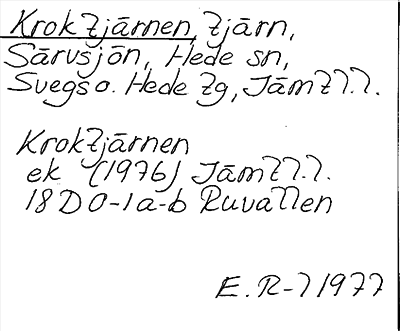 Kroktjärnen, tjärn,
Särvsjön, Hede sn,
Svegs o. Hede tg, Jämtl.l.
Kroktjärnen
ek (1976) Jämtl.l.
18D 0-1a-b Ruvallen
E.R-l 1977